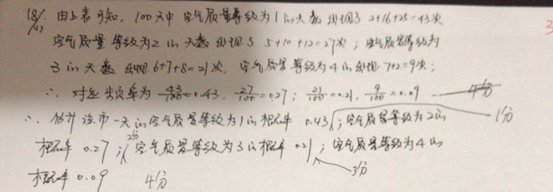 18/. 由上表可知, 100天中 空气质量等级为1的天数 出现了 2+16+25=43次 3
(1) 空气质量 等级为2的天数 出现了 5+10+12=27次; 空气质量等级为
3的天数 出现 6+7+8=21次, 空气质量等级为4的出现 7+2=9次;
∴ 对应频率为 43/100=0.43, 27/100=0.27; 21/100=0.21, 9/100=0.09 4分
∴ 估计该市一天的空气质量等级为1的概率 0.43; 空气质量等级为2的 1分
概率 0.27; 2分 空气质量等级为3的概率 0.21; 空气质量等级为4的
概率 0.09 4分 3分